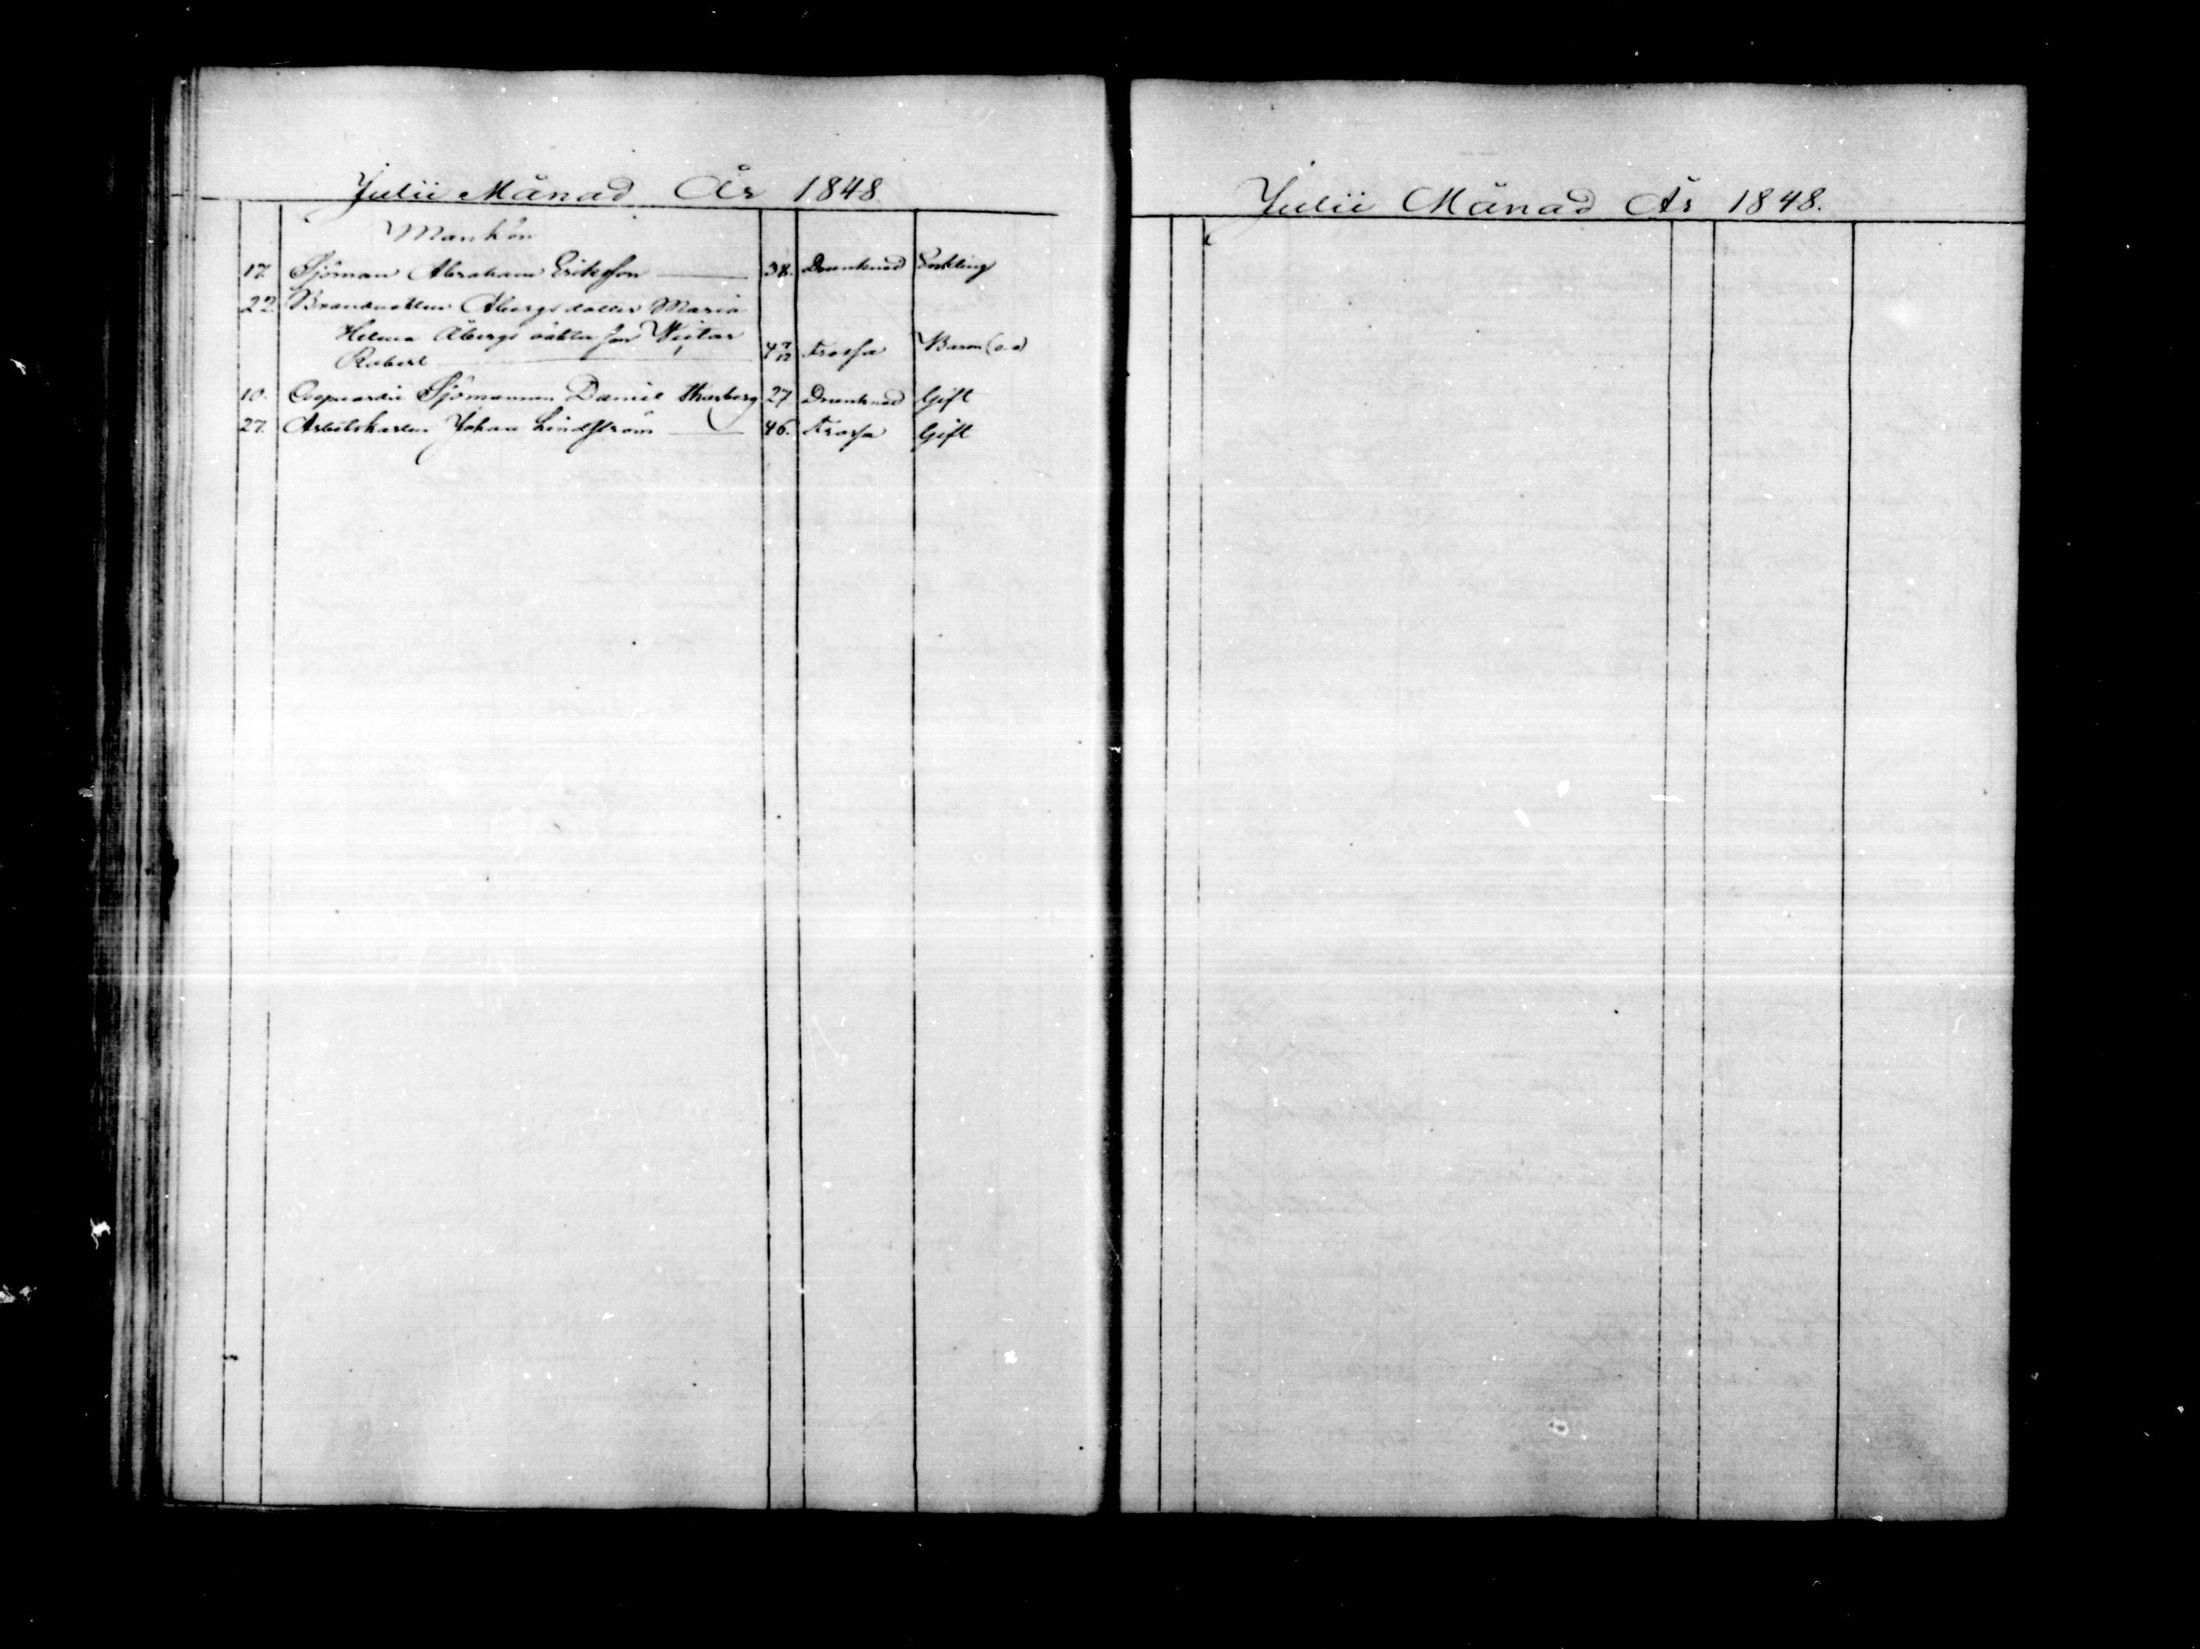 Julii Månad År 1848.
Mankön
17. Sjöman Abraham Eriksson 38. Drunknad Enkling
22. Brandvakten Åbergs dotter Maria
Helena Åbergs oäkta son Victor
Robert 4 7/12 Frossa Barn (o.ä)
10. Sjömannen Daniel 27 Drunknad Gift
27. Arbetskarlen Johan Lindström 46. Frossa Gift
Julii Månad År 1848.